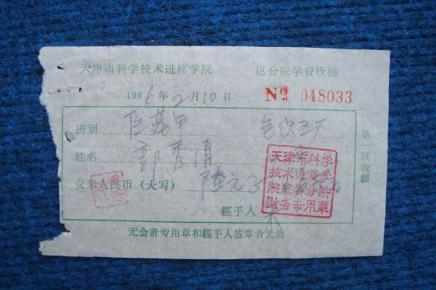 天津市科学技术进修学院 区分院学费收据
1966年2月10日 № 048033
班别 医基甲 色织五厂
姓名 郭秀清
交来人民币（大写） 陆元
天津市科学
技术进修学
财务专用章
經手人
第一联收据
无会計专用章和經手人签章者无效